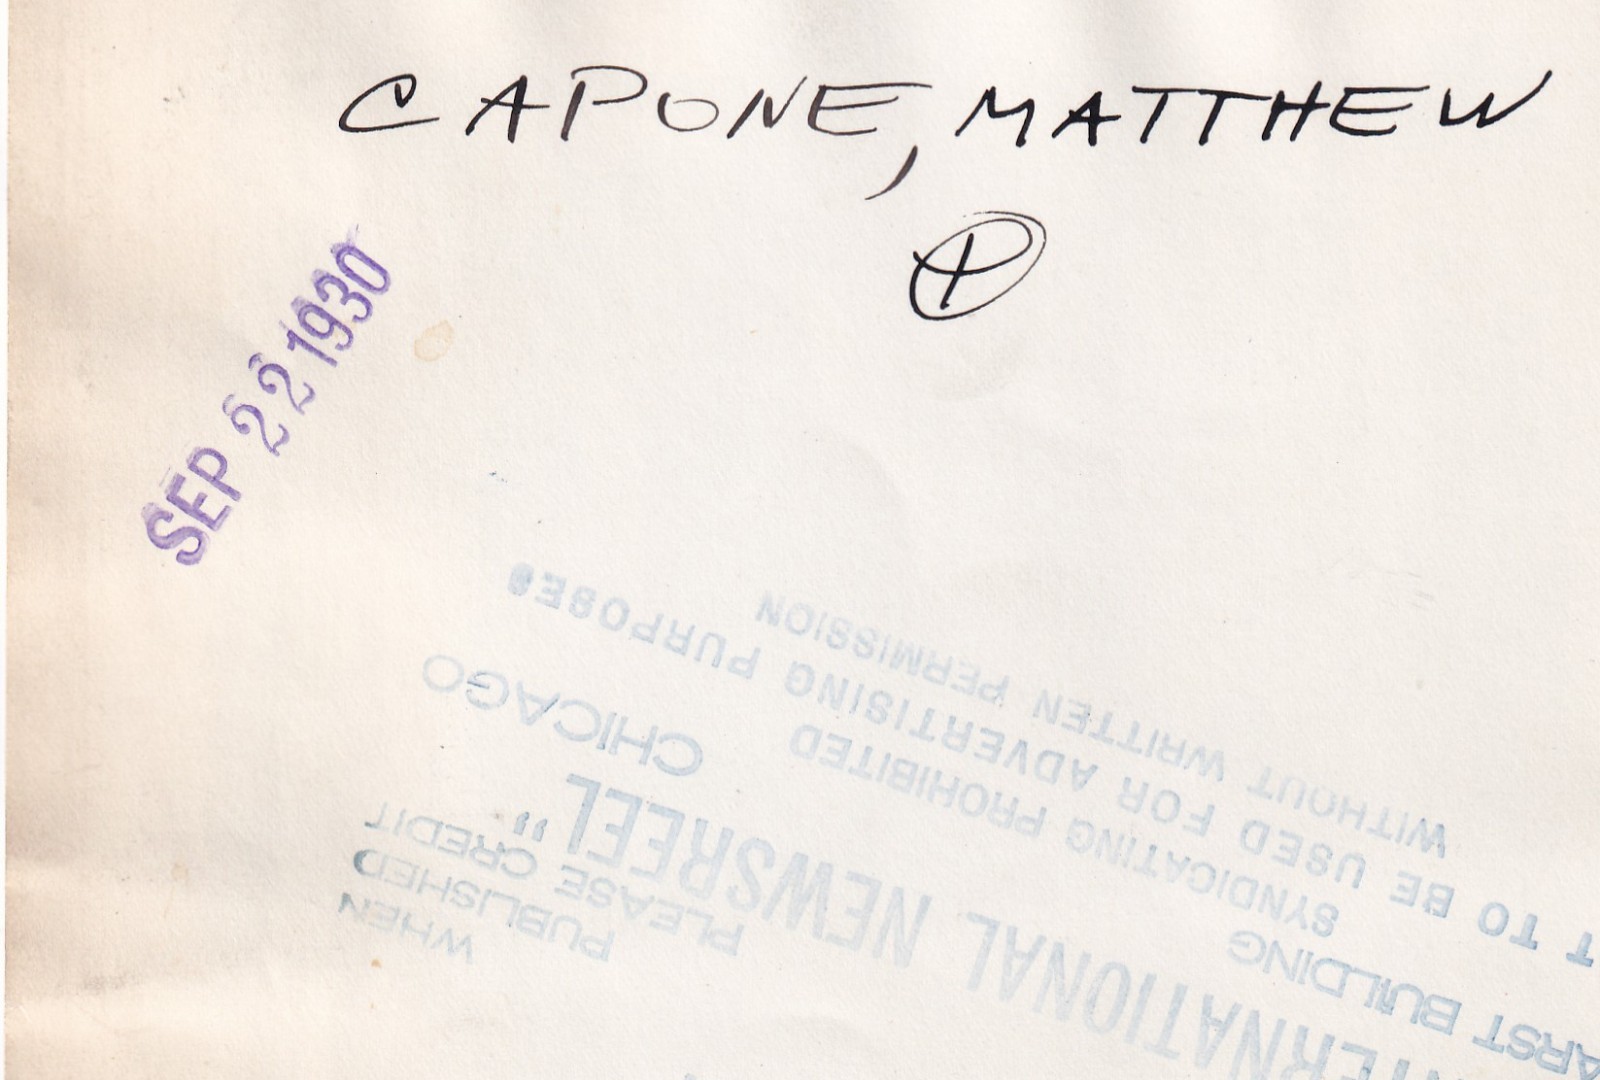 CAPONE, MATTHEW
SEP 22 1930
WHEN
PUBLISHED
PLEASE CREDIT
TERNATIONAL NEWSREEL"
ARST BUILDING CHICAGO
SYNDICATING PROHIBITED
T TO BE USED FOR ADVERTISING PURPOSES
WITHOUT WRITTEN PERMISSION